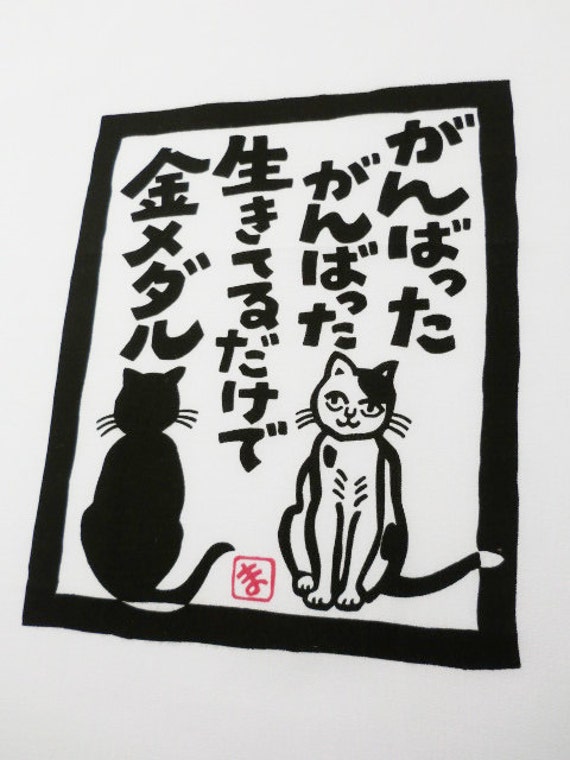 がんばった
がんばった
生きてるだけで
金メダル
ま